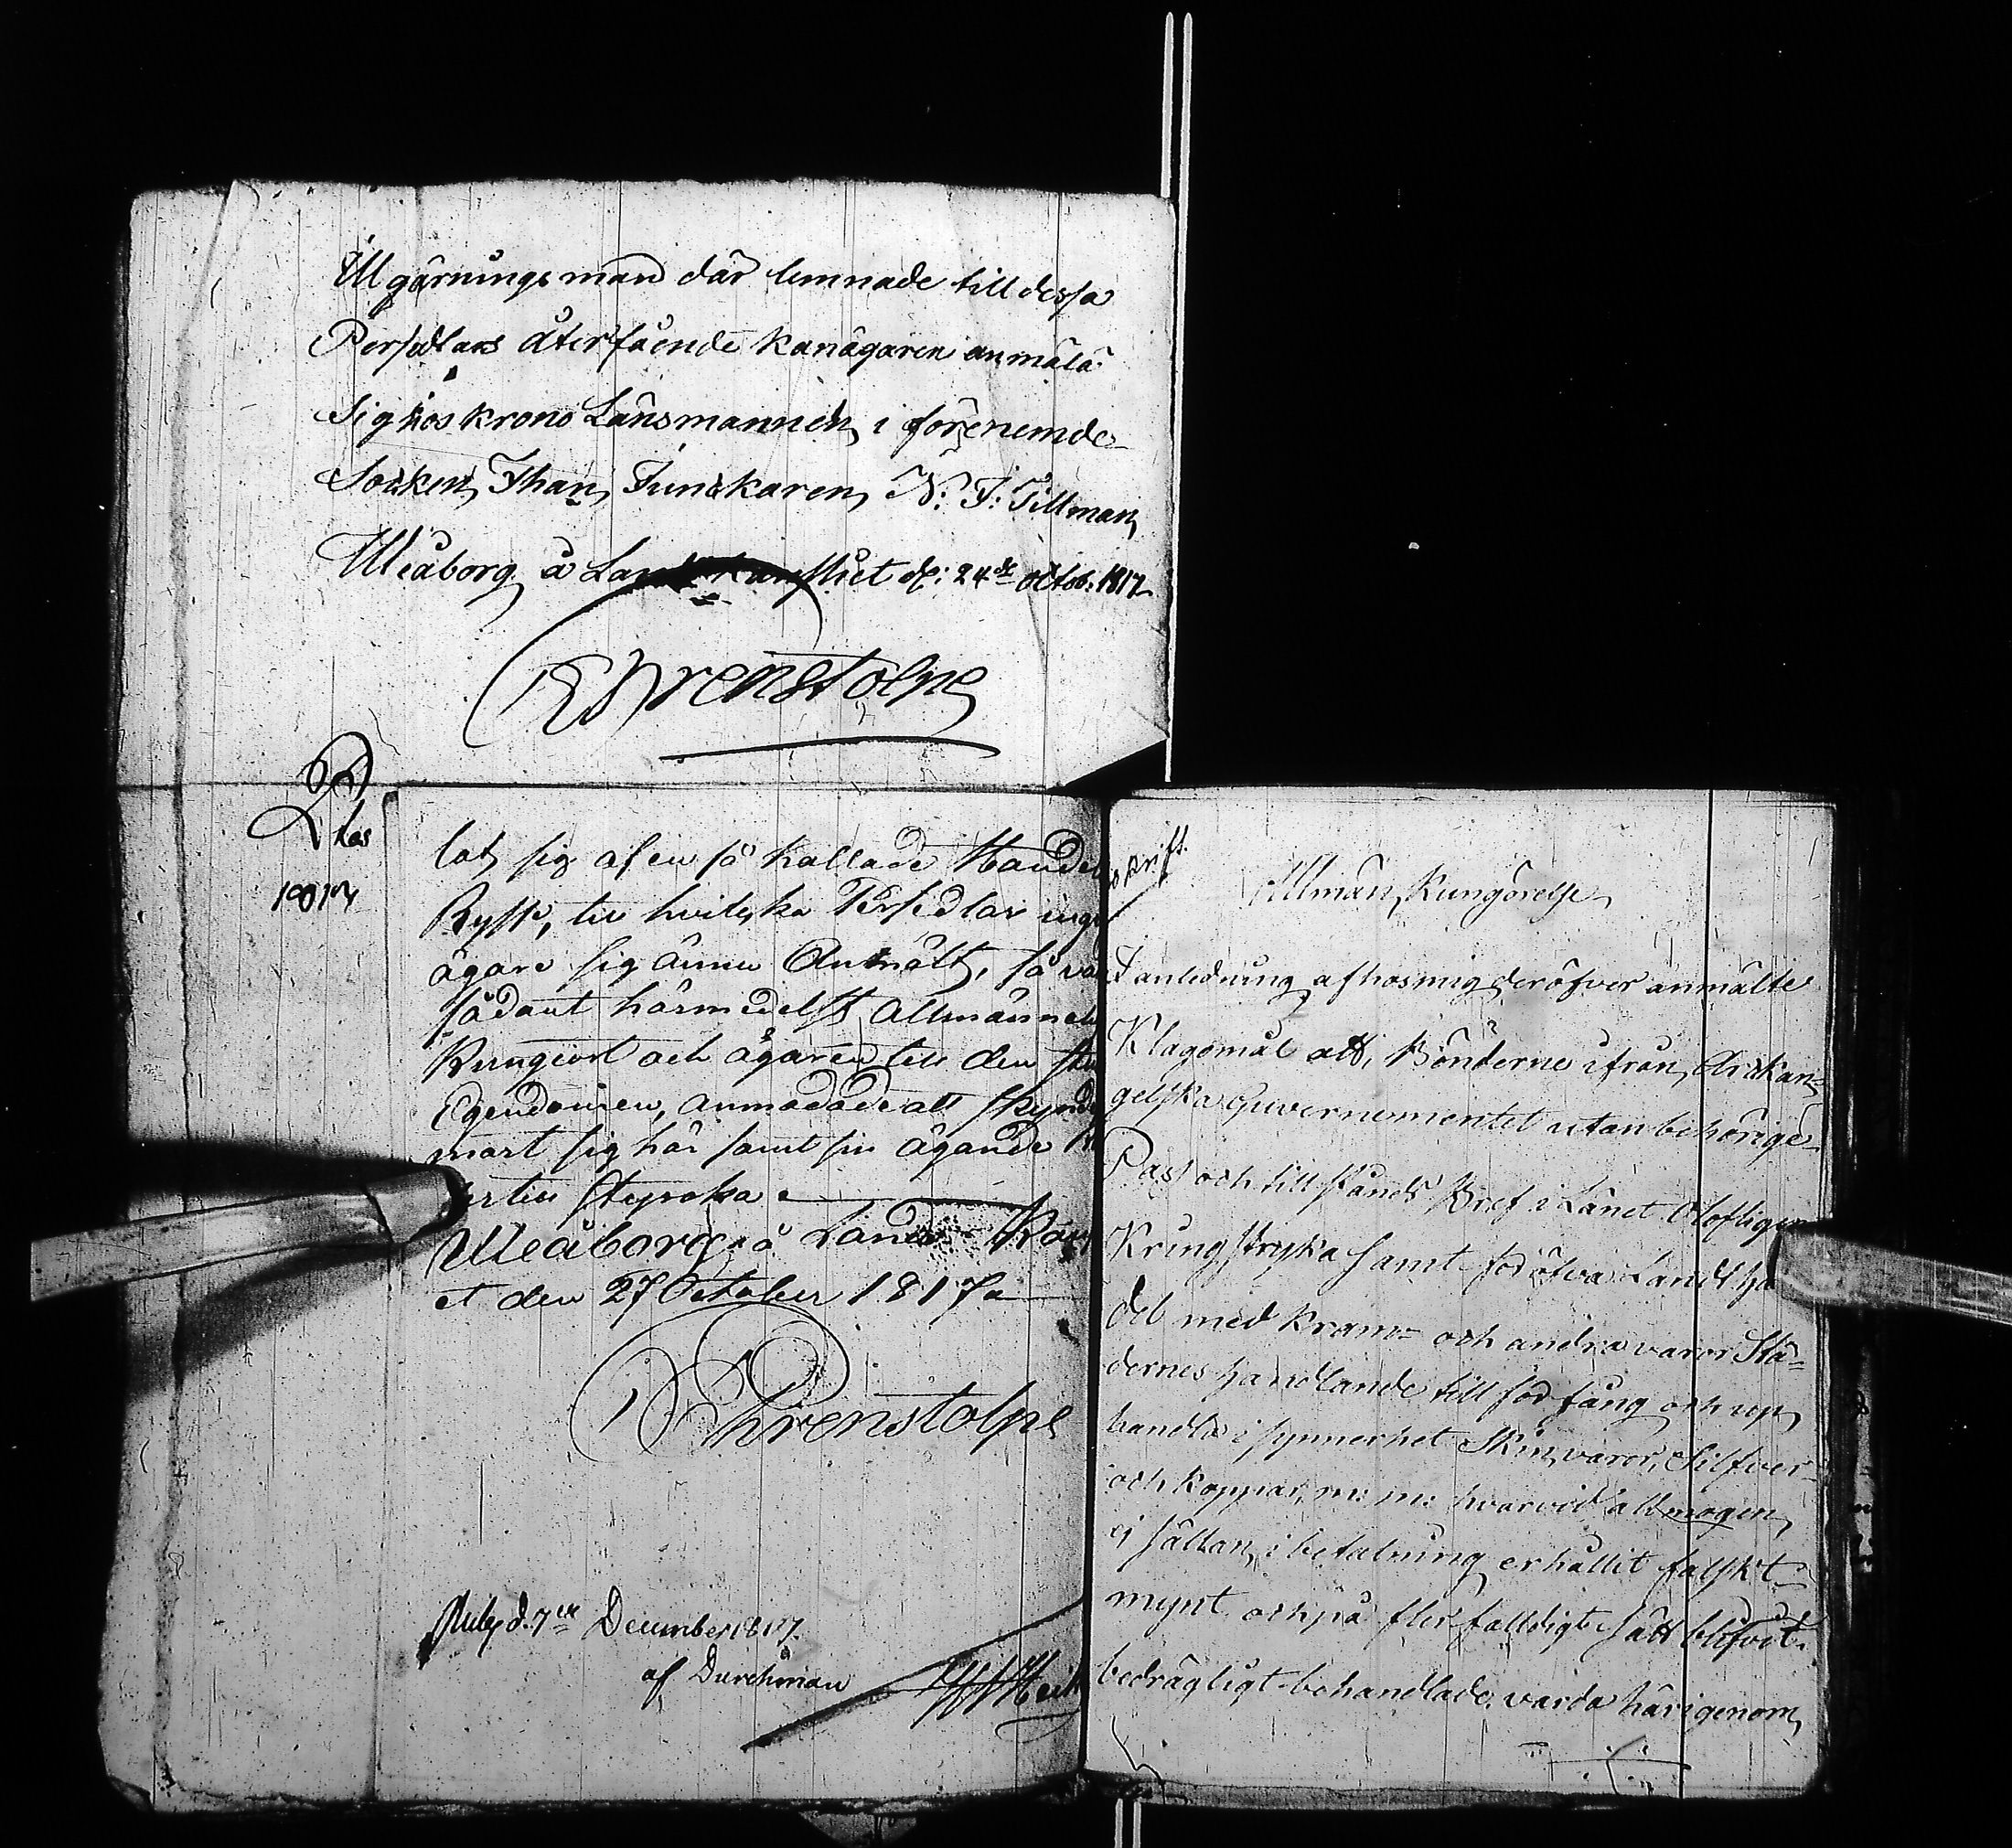 Illgärningsmän där lemnade till dessa
Persedlars återfående kan ägaren anmäla
sig hos krono Länsmannen i förenemde
Socken Johan Funskaren N: J: Tillman
Uleåborg å Landskansliet d: 24de Octob: 1817
Ehrenstolpe
1817
låt sig af en så kallade Handel
Ryss, till hvilka Persedlar ingen
ägare sig ännu Anmält, så va
sådant härmedelst allmänneli
Kungiort och ägaren till den
Egendomen, anmodade att skynd
mast sig här samt sin ägande
till styrka
Uleåborg å Lands Kan
et den 27 October 1817
Ehrenstolpe
Publ d. 7de December 1817.
af Durchman
Allmän Kungörelse
I anledning af hos mig deröfver anmälte
Klagomål att, Bönderne ifrån Arckan-
gelska Guvernementet utan behörige
Pass och tillstånds Bref i Länet Olofligen
Kringstryka samt föröfva Landsha
del med kram- och andra varor Stä-
dernes handlande till förfång och up
handla i synnerhet Skinvaror, Silfver
och koppar, m: m: hvarvid allmogen
ej sällan i betalning erhållit falskt
mynt och på flerfalldigt sätt blifvit
bedrägligt behandlade, varda härigenom